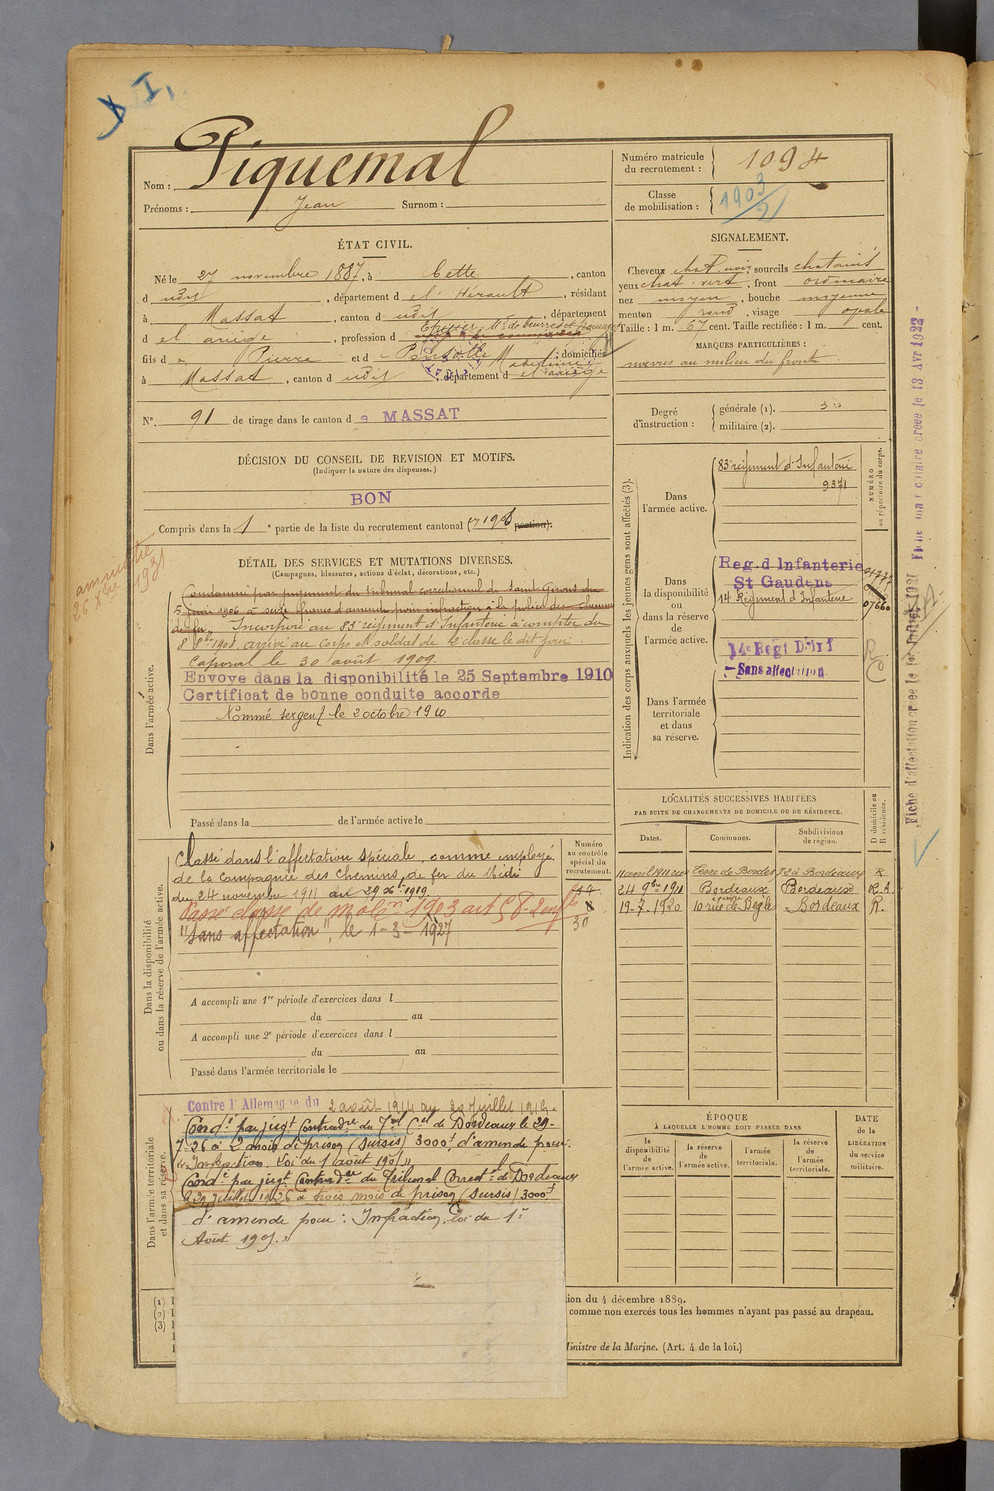 I,
Nom : Piquemal
Prénoms : Jean Surnom :
Numéro matricule du recrutement : 1094
Classe de mobilisation : 1903/2
ÉTAT CIVIL.
Né le 27 novembre 1887, à Cette, canton
d udit, département d e l'Hérault, résidant
à Massat, canton d udit, département
d el ariège, profession d
fils d e Pierre et d ; domiciliés
à Massat, canton d udit, département d el'ariège
N° 91 de tirage dans le canton d e MASSAT
DÉCISION DU CONSEIL DE REVISION ET MOTIFS.
(Indiquer la nature des dispenses.)
BON
Compris dans la 1 e partie de la liste du recrutement cantonal ( portion).
DÉTAIL DES SERVICES ET MUTATIONS DIVERSES.
(Campagnes, blessures, actions d'éclat, décorations, etc.)
amnistié
1931
Dans l'armée active.
Condamné par jugement du tribunal correctionnel de Saint Girons du
5 juin 1906 à seize francs d'amende pour infraction à la police des chemins
de fer. Incorporé au 83e régiment d'Infanterie à compter du
8 8bre 1908, arrivé au corps et soldat de 2e classe le dit jour
Caporal le 30 août 1909.
Envoye dans la disponibilité le 25 Septembre 1910
Certificat de bonne conduite accorde
Nommé sergent le 2 octobre 1910
Passé dans la de l'armée active le
Dans la disponibilité
ou dans la réserve de l'armée active.
Numéro
au contrôle
spécial du
recrutement.
Classé dans l'affectation spéciale, comme employé
de la Compagnie des Chemins de fer du Midi
du 24 novembre 1911 au 29 Xbre 1919
Passé classe de mob on 1903 art 58 - 2 enfts
"Sans affectation", le 1-3-1927
30
A accompli une 1re période d'exercices dans l
du au
A accompli une 2e période d'exercices dans l
du au
Passé dans l'armée territoriale le
Dans l'armée territoriale
et dans sa réserve.
Contre l'Allemagne du 2 août 1914 au 29 Juillet 1919.
Condé par jugt Contradre du Tal Cel de Bordeaux le 29-
7-26 à 2 mois de prison (sursis) 3000f d'amende pour
"Infraction Loi du 1 août 1905"
Condé par jugt Contradre du Tribunal Correctl de Bordeaux
le 29 juillet 1926 à trois mois de prison (sursis) 3000f
d'amende pour : Infraction, Loi du 1er
Août 1905."
(1)
(2)
(3)
ion du 4 décembre 1889.
comme non exercés tous les hommes n'ayant pas passé au drapeau.
Ministre de la Marine. (Art. 4 de la loi.)
SIGNALEMENT.
Cheveux chat noir sourcils chatains
yeux chat. vert, front ordinaire
nez moyen, bouche moyenne
menton rond, visage opale
Taille : 1 m. 67 cent. Taille rectifiée : 1 m. cent.
MARQUES PARTICULIÈRES :
nævus au milieu du front
Degré d'instruction :
générale (1).
militaire (2).
Indication des corps auxquels les jeunes gens sont affectés (3).
NUMÉRO
au répertoire du corps.
Dans
l'armée active.
83e régiment d'Infanterie
9371
Dans
la disponibilité
ou
dans la réserve
de
l'armée active.
Reg. d Infanterie
St Gaudens
14 Régiment d'Infanterie
07660
14e Regt D'Inf
Sans affectation
Dans l'armée
territoriale
et dans
sa réserve.
LOCALITÉS SUCCESSIVES HABITÉES
PAR SUITE DE CHANGEMENTS DE DOMICILE OU DE RÉSIDENCE.
Dates. Communes. Subdivisions de région. D domicile ou R résidence.
Bordeaux R
24 9bre 1911 Bordeaux Bordeaux R.A.
19-7-1920 10 rue de Bègles Bordeaux R.
ÉPOQUE
À LAQUELLE L'HOMME DOIT PASSER DANS
DATE
de la
LIBÉRATION
du service
militaire.
la disponibilité de l'armée active.
la réserve de l'armée active.
l'armée territoriale.
la réserve de l'armée territoriale.
Fiche matriculaire créée le 13 Avr 1922